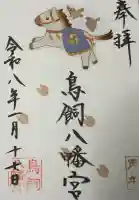 奉拝
鳥飼八幡宮
令和八年一月十七日
鳥飼